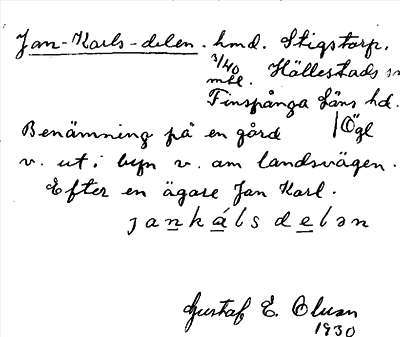 Jan-Karls-delen. hmd. Stigstorp,
1/40 mtl. Hällestads sn
Finspånga läns hd.
Benämning på en gård /Ögl
v. ut i byn v. om landsvägen.
Efter en ägare Jan Karl.
jankálsdelən
Gustaf E. Olsson
1930